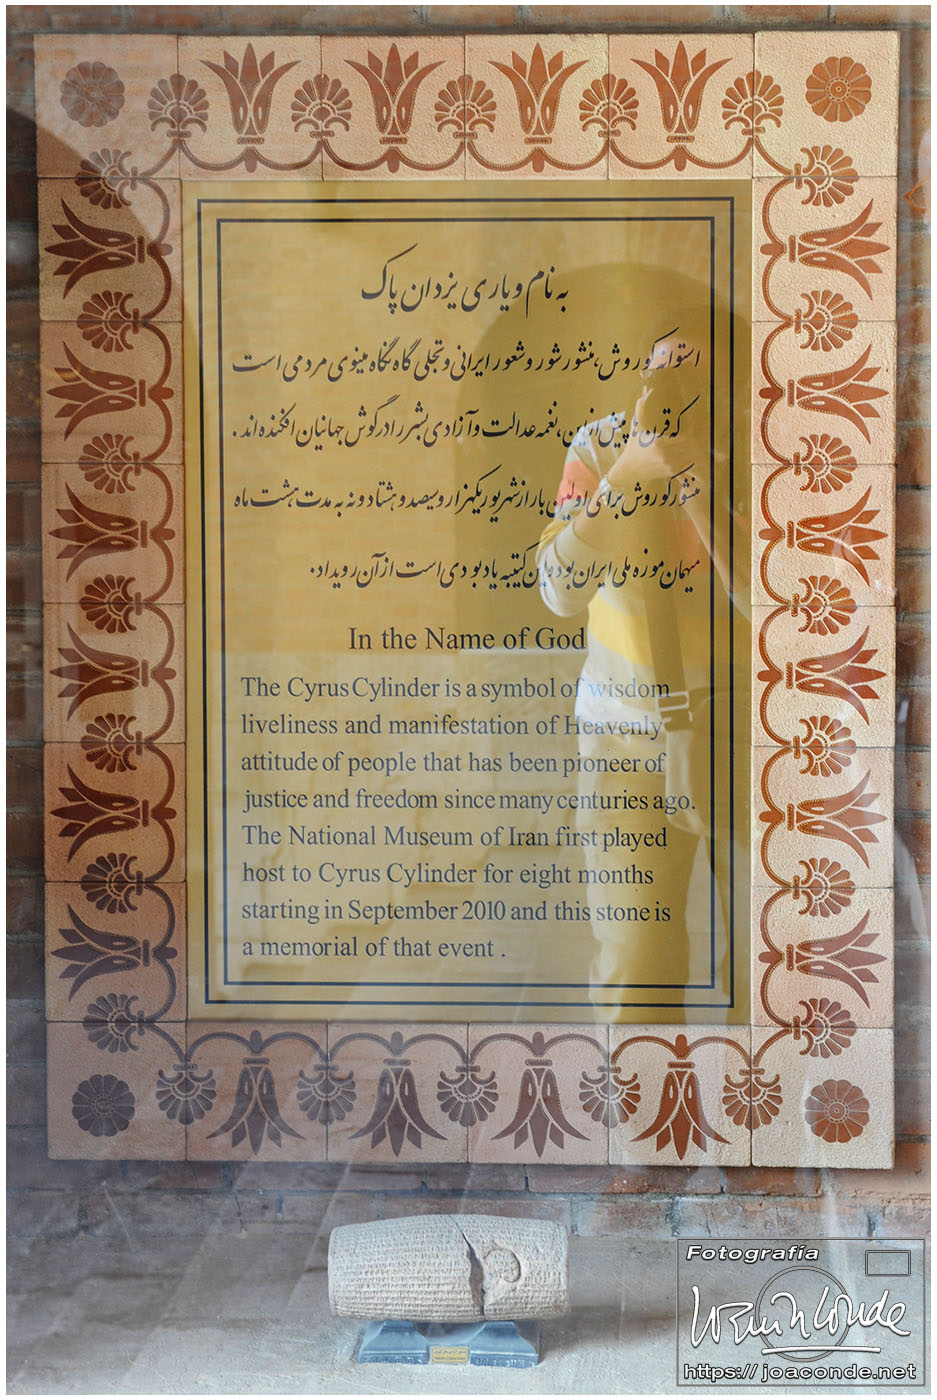 به نام و یاری یزدان پاک
استوانه کوروش، منشور شور و شعور ایرانی و تجلی گاه نگاه مینوی مردمی است
که قرن ها پیش از این، نغمه عدالت و آزادی بشر را در گوش جهانیان افکنده اند.
منشور کوروش برای اولین بار از شهریور یکهزار و سیصد و هشتاد و نه به مدت هشت ماه
میهمان موزه ملی ایران بود و این کتیبه یادبودی است از آن رویداد.
In the Name of God
The Cyrus Cylinder is a symbol of wisdom
liveliness and manifestation of Heavenly
attitude of people that has been pioneer of
justice and freedom since many centuries ago.
The National Museum of Iran first played
host to Cyrus Cylinder for eight months
starting in September 2010 and this stone is
a memorial of that event .
Fotografía
https:// joaconde.net